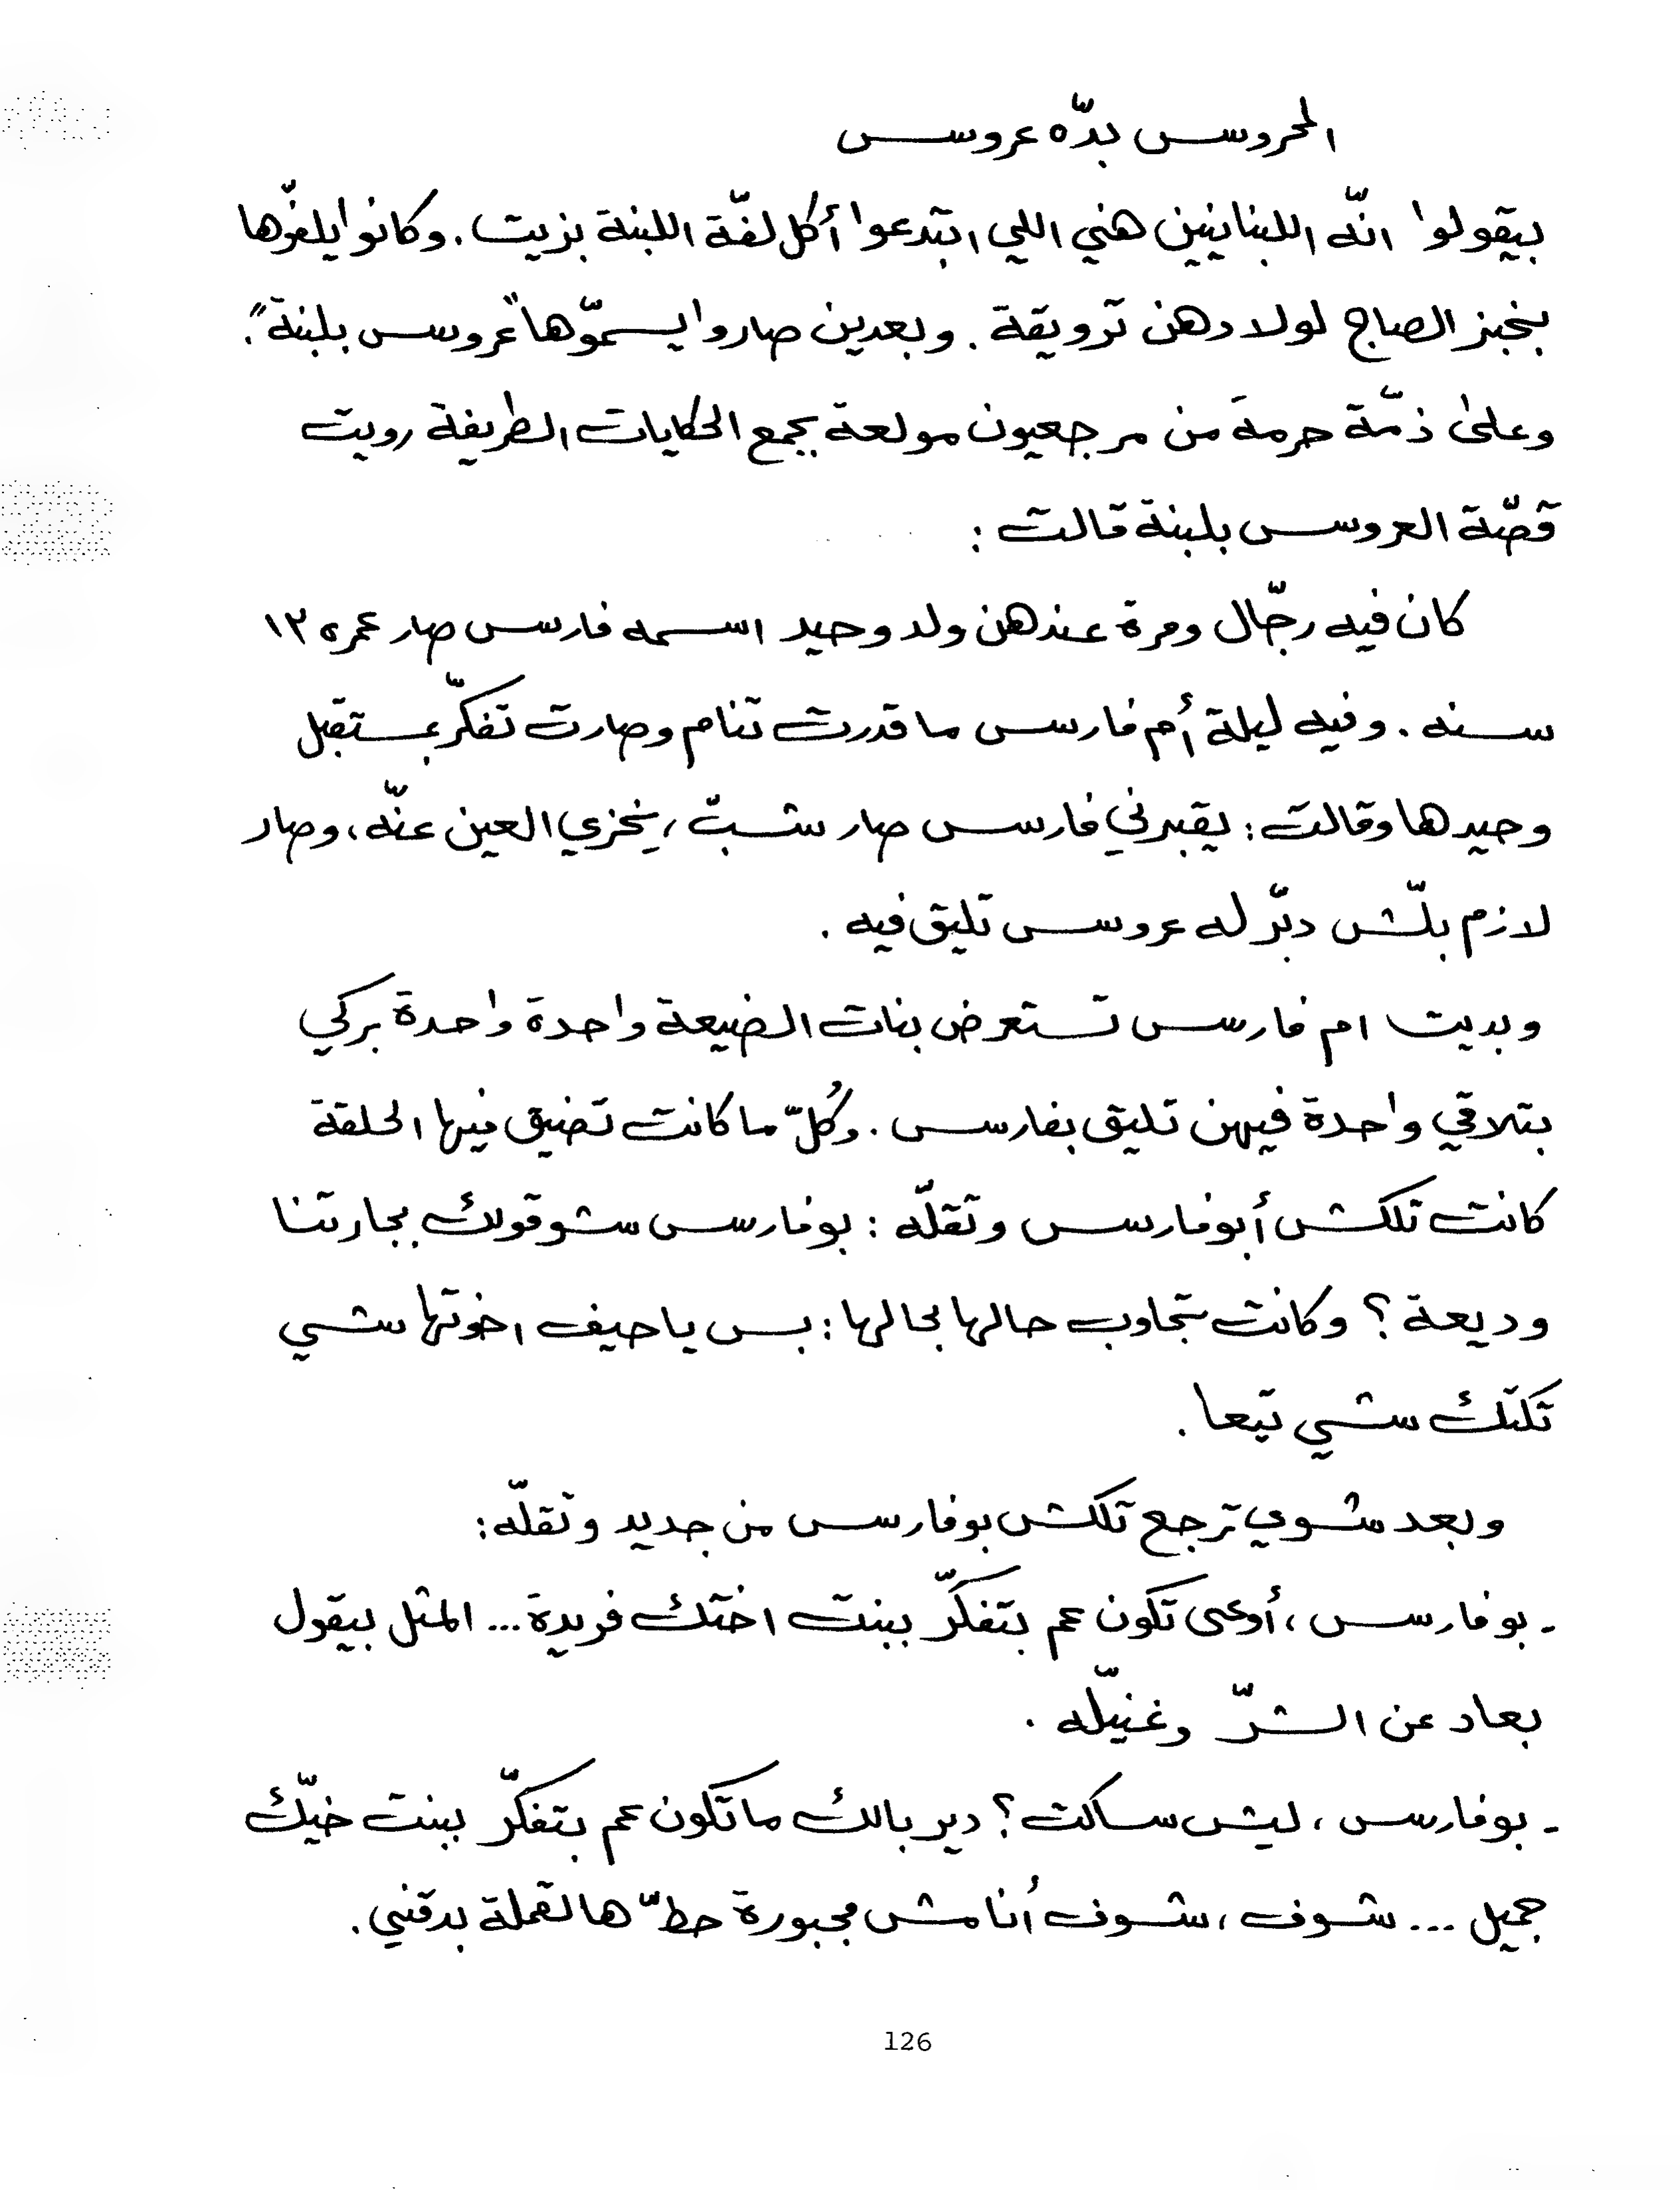 المحروس بدّه عروس
بيقولوا انّه اللبنانيين هني اللي ابتدعوا أكل لفّة اللبنة بزيت. وكانوا يلفّوها
بخبز الصاج لولادهن ترويقة. وبعدين صاروا يسمّوها "عروس بلبنة".
وعلى ذمّة حرمة من مرجعيون مولعة بجمع الحكايات الطريفة رويت
قصّة العروس بلبنة قالت :
كان فيه رجّال ومرة عندهن ولد وحيد اسمه فارس صار عمره ١٢
سنه. وفيه ليلة أم فارس ما قدرت تنام وصارت تفكّر بمستقبل
وحيدها وقالت: يقبرني فارس صار شبّ، يخزي العين عنّه، وصار
لازم بلّش دبّر له عروس تليق فيه.
وبديت ام فارس تستعرض بنات الضيعة واحدة واحدة بركي
بتلاقي واحدة فيهن تليق بفارس. وكُلّ ما كانت تضيق فيها الحلقة
كانت تلكش أبو فارس وتقلّه : بو فارس شو قولك بجارتنا
وديعة؟ وكانت تجاوب حالها بحالها: بس يا حيف اخوتها شي
تكتك شي تيعا.
وبعد شوي ترجع تلكش بو فارس من جديد وتقلّه:
- بو فارس، أوعى تكون عم بتفكّر ببنت اختك فريدة... المثل بيقول
بعاد عن الشرّ وغنيّله.
- بو فارس، ليش ساكت؟ دير بالك ما تكون عم بتفكّر ببنت خيّك
جميل ... شوف، شوف أنا مش مجبورة حطّ هالقملة بدقني.
126